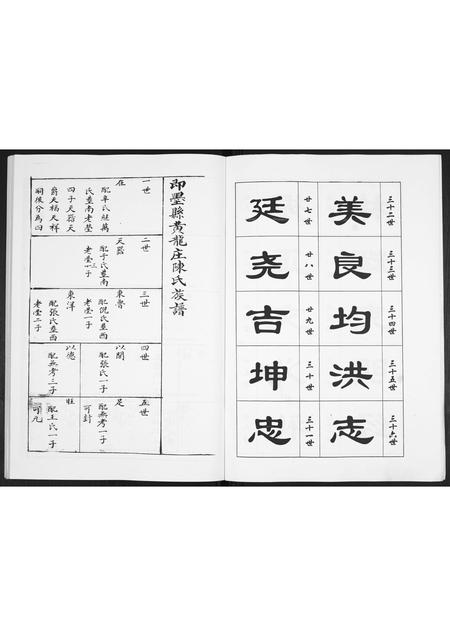 三十二世
美
三十三世
良
三十四世
均
三十五世
洪
三十六世
志
廿七世
廷
廿八世
尧
廿九世
吉
三十世
坤
三十一世
忠
即墨縣黃龍庄陳氏族譜
一世
在
配辛氏
氏並南老塋
四子天英
爵天福天祥
嗣後分為四
二世
天爵
配于氏並南
老塋一子
三世
東魯
配倪氏並西
老塋一子
東洋
配張氏並西
老塋二子
四世
以聞
配張氏一子
以德
配無考三子
五世
足
配無考一子
可封
旺
配王氏一子
可九